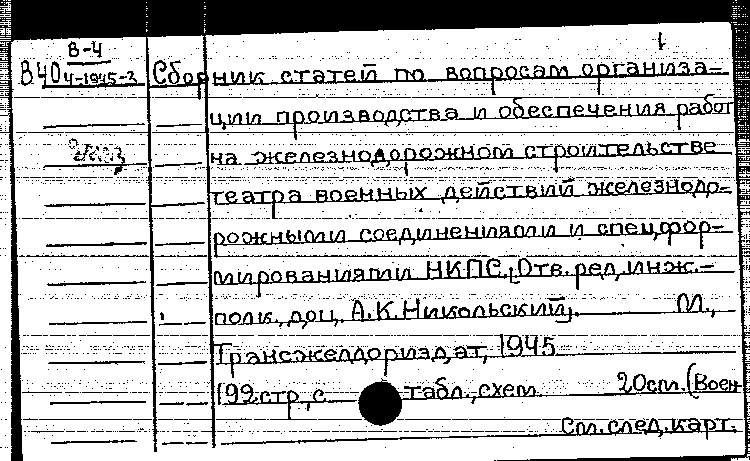 В-4
В40 4-1945-3
1
Сборник статей по вопросам организа-
ции производства и обеспечения работ
на железнодорожном строительстве
театра военных действий железнодо-
рожными соединениями и спецфор-
мированиями НКПС. [Отв. ред. инж.-
полк., доц. А.К. Никольский]. М.,
Трансжелдориздат, 1945
192 стр., с табл., схем 20см. (Воен
См. след. карт.